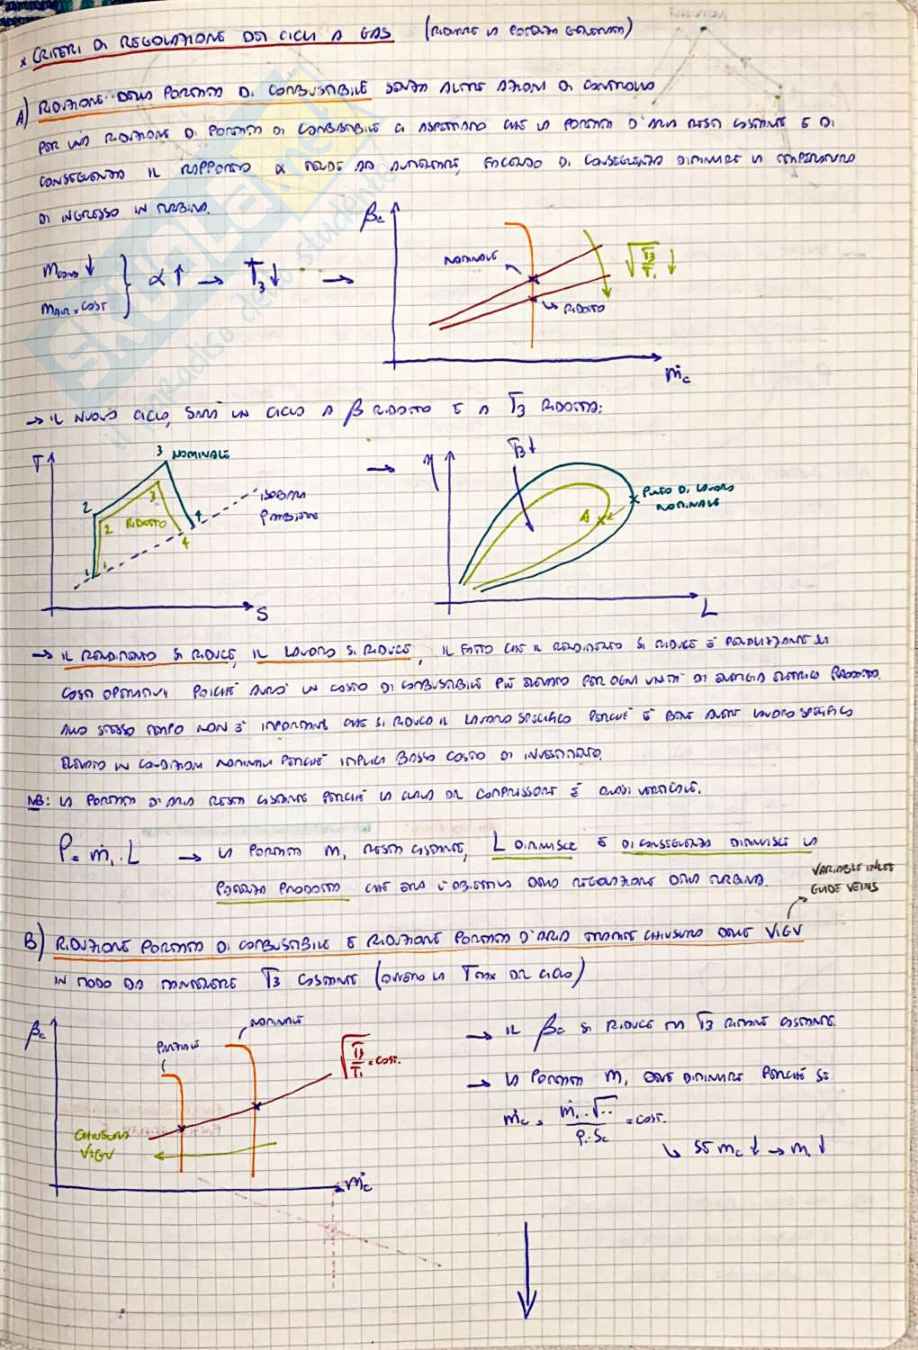 * CRITERI DI REGOLAZIONE DEI CICLI A GAS (RIDURRE LA POTENZA GENERATA)
A) RIDUZIONE DELLA PORTATA DI COMBUSTIBILE SENZA ALTRE AZIONI DI CONTROLLO
PER UNA RIDUZIONE DI PORTATA DI COMBUSTIBILE CI ASPETTIAMO CHE LA PORTATA D'ARIA RESTI COSTANTE E DI
CONSEGUENZA IL RAPPORTO α TENDE AD AUMENTARE, FACENDO DI CONSEGUENZA DIMINUIRE LA TEMPERATURA
DI INGRESSO IN TURBINA.
βc
NOMINALE
√T3/T1 ↓
RIDOTTO
ṁc
ṁcomb ↓
ṁARIA = COST
} α↑ → T3↓ →
→ IL NUOVO CICLO, SARÀ UN CICLO A β RIDOTTO E A T3 RIDOTTA:
T
3 NOMINALE
2
3
2 RIDOTTO
4
4
1
1
ISOBARA
S
→
η
T3↓
PUNTO DI LAVORO
NOMINALE
A
L
→ IL RENDIMENTO SI RIDUCE, IL LAVORO SI RIDUCE, IL FATTO CHE IL RENDIMENTO SI RIDUCE È PENALIZZANTE SUI
COSTI OPERATIVI POICHÉ AVRÒ UN COSTO DI COMBUSTIBILE PIÙ ELEVATO PER OGNI UNITÀ DI ENERGIA ELETTRICA PRODOTTA.
ALLO STESSO TEMPO NON È IMPORTANTE CHE SI RIDUCA IL LAVORO SPECIFICO PERCHÉ È BENE AVERE LAVORO SPECIFICO
ELEVATO IN CONDIZIONI NOMINALI PERCHÉ IMPLICA BASSO COSTO DI INVESTIMENTO.
NB: LA PORTATA DI ARIA RESTA COSTANTE PERCHÉ LA CURVA DEL COMPRESSORE È QUASI VERTICALE.
P = ṁ1 · L → LA PORTATA m1 RESTA COSTANTE, L DIMINUISCE E DI CONSEGUENZA DIMINUISCE LA
POTENZA PRODOTTA CHE ERA L'OBIETTIVO DELLA REGOLAZIONE DELLA TURBINA.
VARIABLE INLET
GUIDE VEINS
B) RIDUZIONE PORTATA DI COMBUSTIBILE E RIDUZIONE PORTATA D'ARIA TRAMITE CHIUSURA DELLE VIGV
IN MODO DA MANTENERE T3 COSTANTE (OVVERO LA TMAX DEL CICLO)
βc
PARZIALE
NOMINALE
√T3/T1 = COST.
CHIUSURA
VIGV
ṁc
→ IL βc SI RIDUCE MA T3 RIMANE COSTANTE
→ LA PORTATA m1 DEVE DIMINUIRE PERCHÉ SE
ṁc = ṁ1·√.. / P1·Sc = COST.
↳ SE mc↓ → m1↓